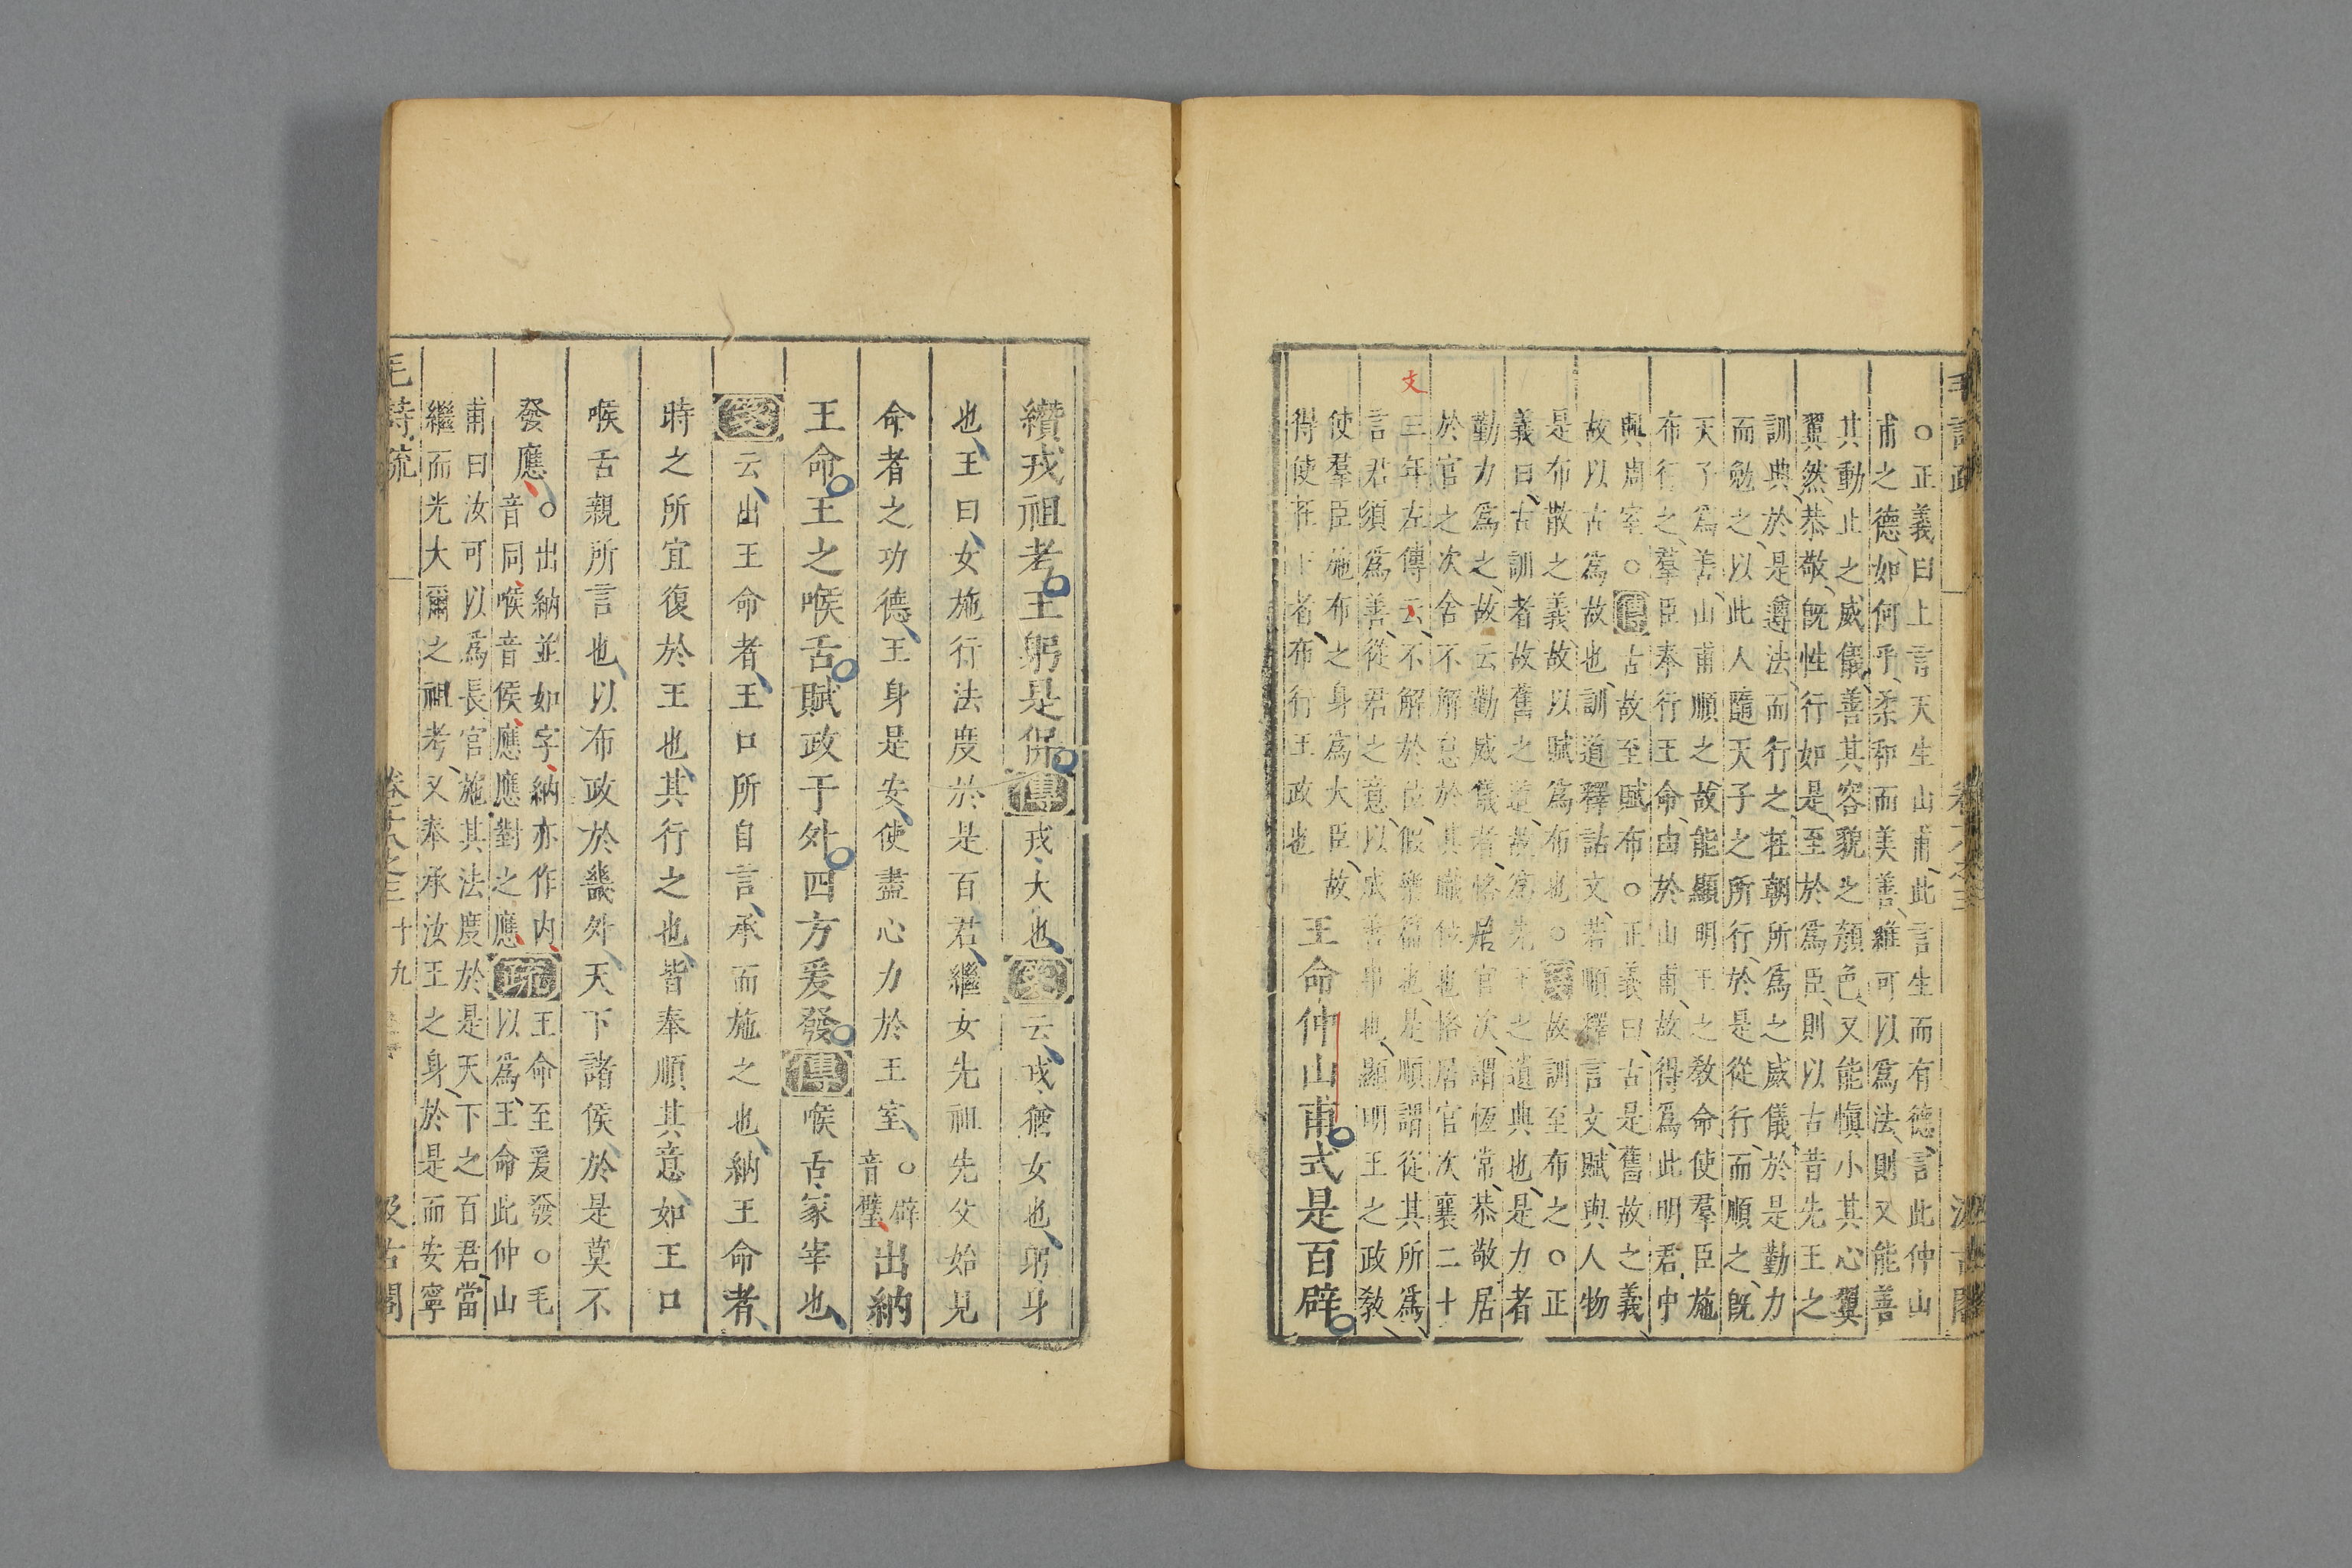 毛詩疏
○正義曰上言天生山甫此言生而有德言此仲山
甫之德如何乎柔和而美善維可以爲法則又能善
其動止之威儀善其容貌之顔色又能慎小其心翼
翼然恭敬既性行如是至於爲臣則以古昔先王之
訓典於是遵法而行之在朝所爲之威儀於是勤力
而勉之以此人隨天子之所行於是從行而順之既
天子爲善山甫順之故能顯明王之教命使羣臣施
布行之羣臣奉行王命由於山甫故得爲此明君中
興周室○傳古故至賦布○正義曰古是舊故之義
故以古爲故也訓道釋詁文若順釋言文賦與人物
是布散之義故以賦爲布也○箋故訓至布之○正
義曰古訓者故舊之道故爲先王之遺典也是力者
勤力爲之故云勤威儀者恪居官次謂恆常恭敬居
於官之次舍不解怠於其職位也恪居官次襄二十
三年左傳云不解於位假樂篇也是順謂從其所爲
言君須爲善從君之意以成善事也顯明王之政教
使羣臣施布之身爲大臣故
得使在下者布行王政也
王命仲山甫式是百辟
支
纘戎祖考王躬是保傳戎大也箋云戎猶女也躬身
也王曰女施行法度於是百君繼女先祖先父始見
命者之功德王身是安使盡心力於王室○辟音璧出納
王命王之喉舌賦政于外四方爰發傳喉舌冢宰也
箋云出王命者王口所自言承而施之也納王命者
時之所宜復於王也其行之也皆奉順其意如王口
喉舌親所言也以布政於畿外天下諸侯於是莫不
發應○出納並如字納亦作内音同喉音侯應應對之應疏王命至爰發○毛以爲王命此仲山
甫曰汝可以爲長官施其法度於是天下之百君當
繼而光大爾之祖考又奉承汝王之身於是而安寧
毛詩疏
卷十八之三
十九
汲古閣